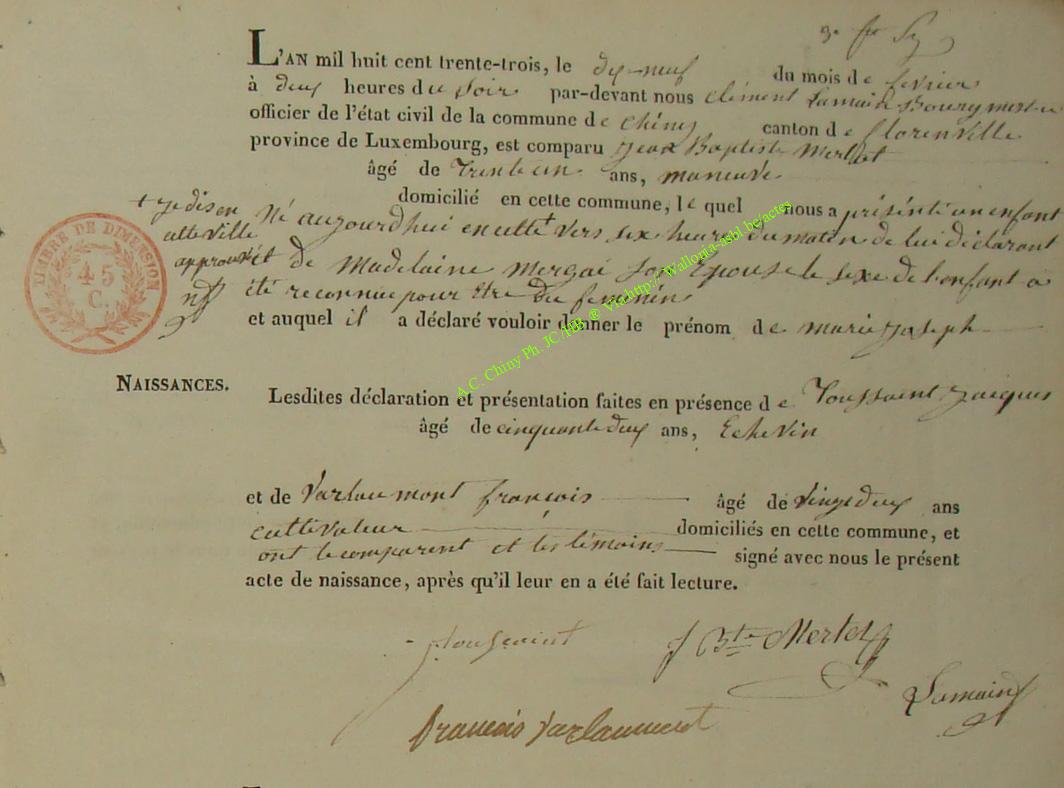 L'AN mil huit cent trente-trois, le dix neuf du mois de fevrier
à deux heures du soir par-devant nous Clément Lamain Bourgmestre
officier de l'état civil de la commune de Chiny canton de florenville
province de Luxembourg, est comparu Jean Baptiste Merlot
âgé de trente un ans, maneuvé
domicilié en cette commune, le quel nous a présenté un enfant
né aujourdhui en cette vers six heure du matin de lui déclarant
et de Madelaine Mergai son Epouse le sexe de l'enfant a
été reconnue pour être du feminin
et auquel il a déclaré vouloir donner le prénom de marie joseph
+ je dis en
cette ville
approuvé
TIMBRE DE DIMENSION
45
C.
NAISSANCES.
Lesdites déclaration et présentation faites en présence de Toussaint Jacques
âgé de cinquante deux ans, Echevin
et de Varlaumont françois âgé de vingt deux ans
cultivateur domiciliés en cette commune, et
ont le comparent et les témoins signé avec nous le présent
acte de naissance, après qu'il leur en a été fait lecture.
J Toussaint
J Bte Merlot
Lamain
francois varlaumont
A.C. Chiny Ph. JC /HB ® via http://Wallonia-asbl.be/actes